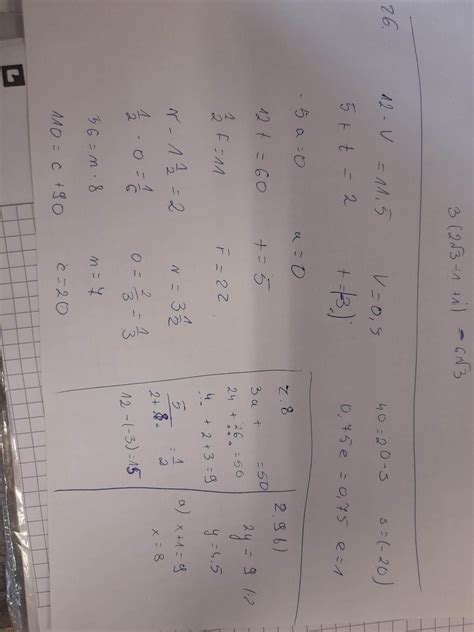 3(2√3-1+1) = 6√3
26.
12 - V = 11,5 V = 0,5 40 = 20 - s s = (-20)
5 + t = 2 t = (-3) 0,75e = 0,75 e = 1
-5a = 0 a = 0
12t = 60 t = 5
1/2 F = 11 F = 22
N - 1 1/2 = 2 N = 3 1/2
1/2 · O = 1/6 O = 2/3 = 1/3
56 = m · 8 m = 7
110 = c + 90 c = 20
z.8
3a + = 50
24 + 26 = 50
4 + 2 + 3 = 9
5/2+8 = 1/2
12 - (-3) = 15
z.9 b)
2y = 9 /:2
y = 4,5
a) x + 1 = 9
x = 8